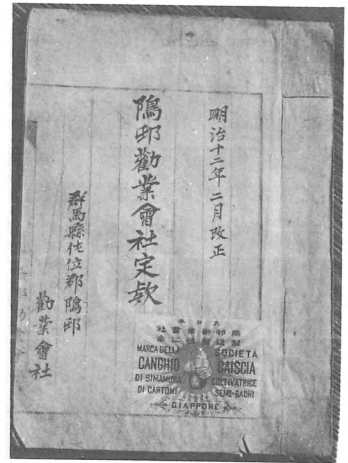 明治十二年二月改正
隝邨勸業會社定款
群馬縣佐位郡隝邨
勸業會社
MARCA DELLA SOCIETÀ
CANGHIO CAISCIA
DI SIMAMURA COLTIVATRICE
DI CARTONI SEME-BACHI
GIAPPONE